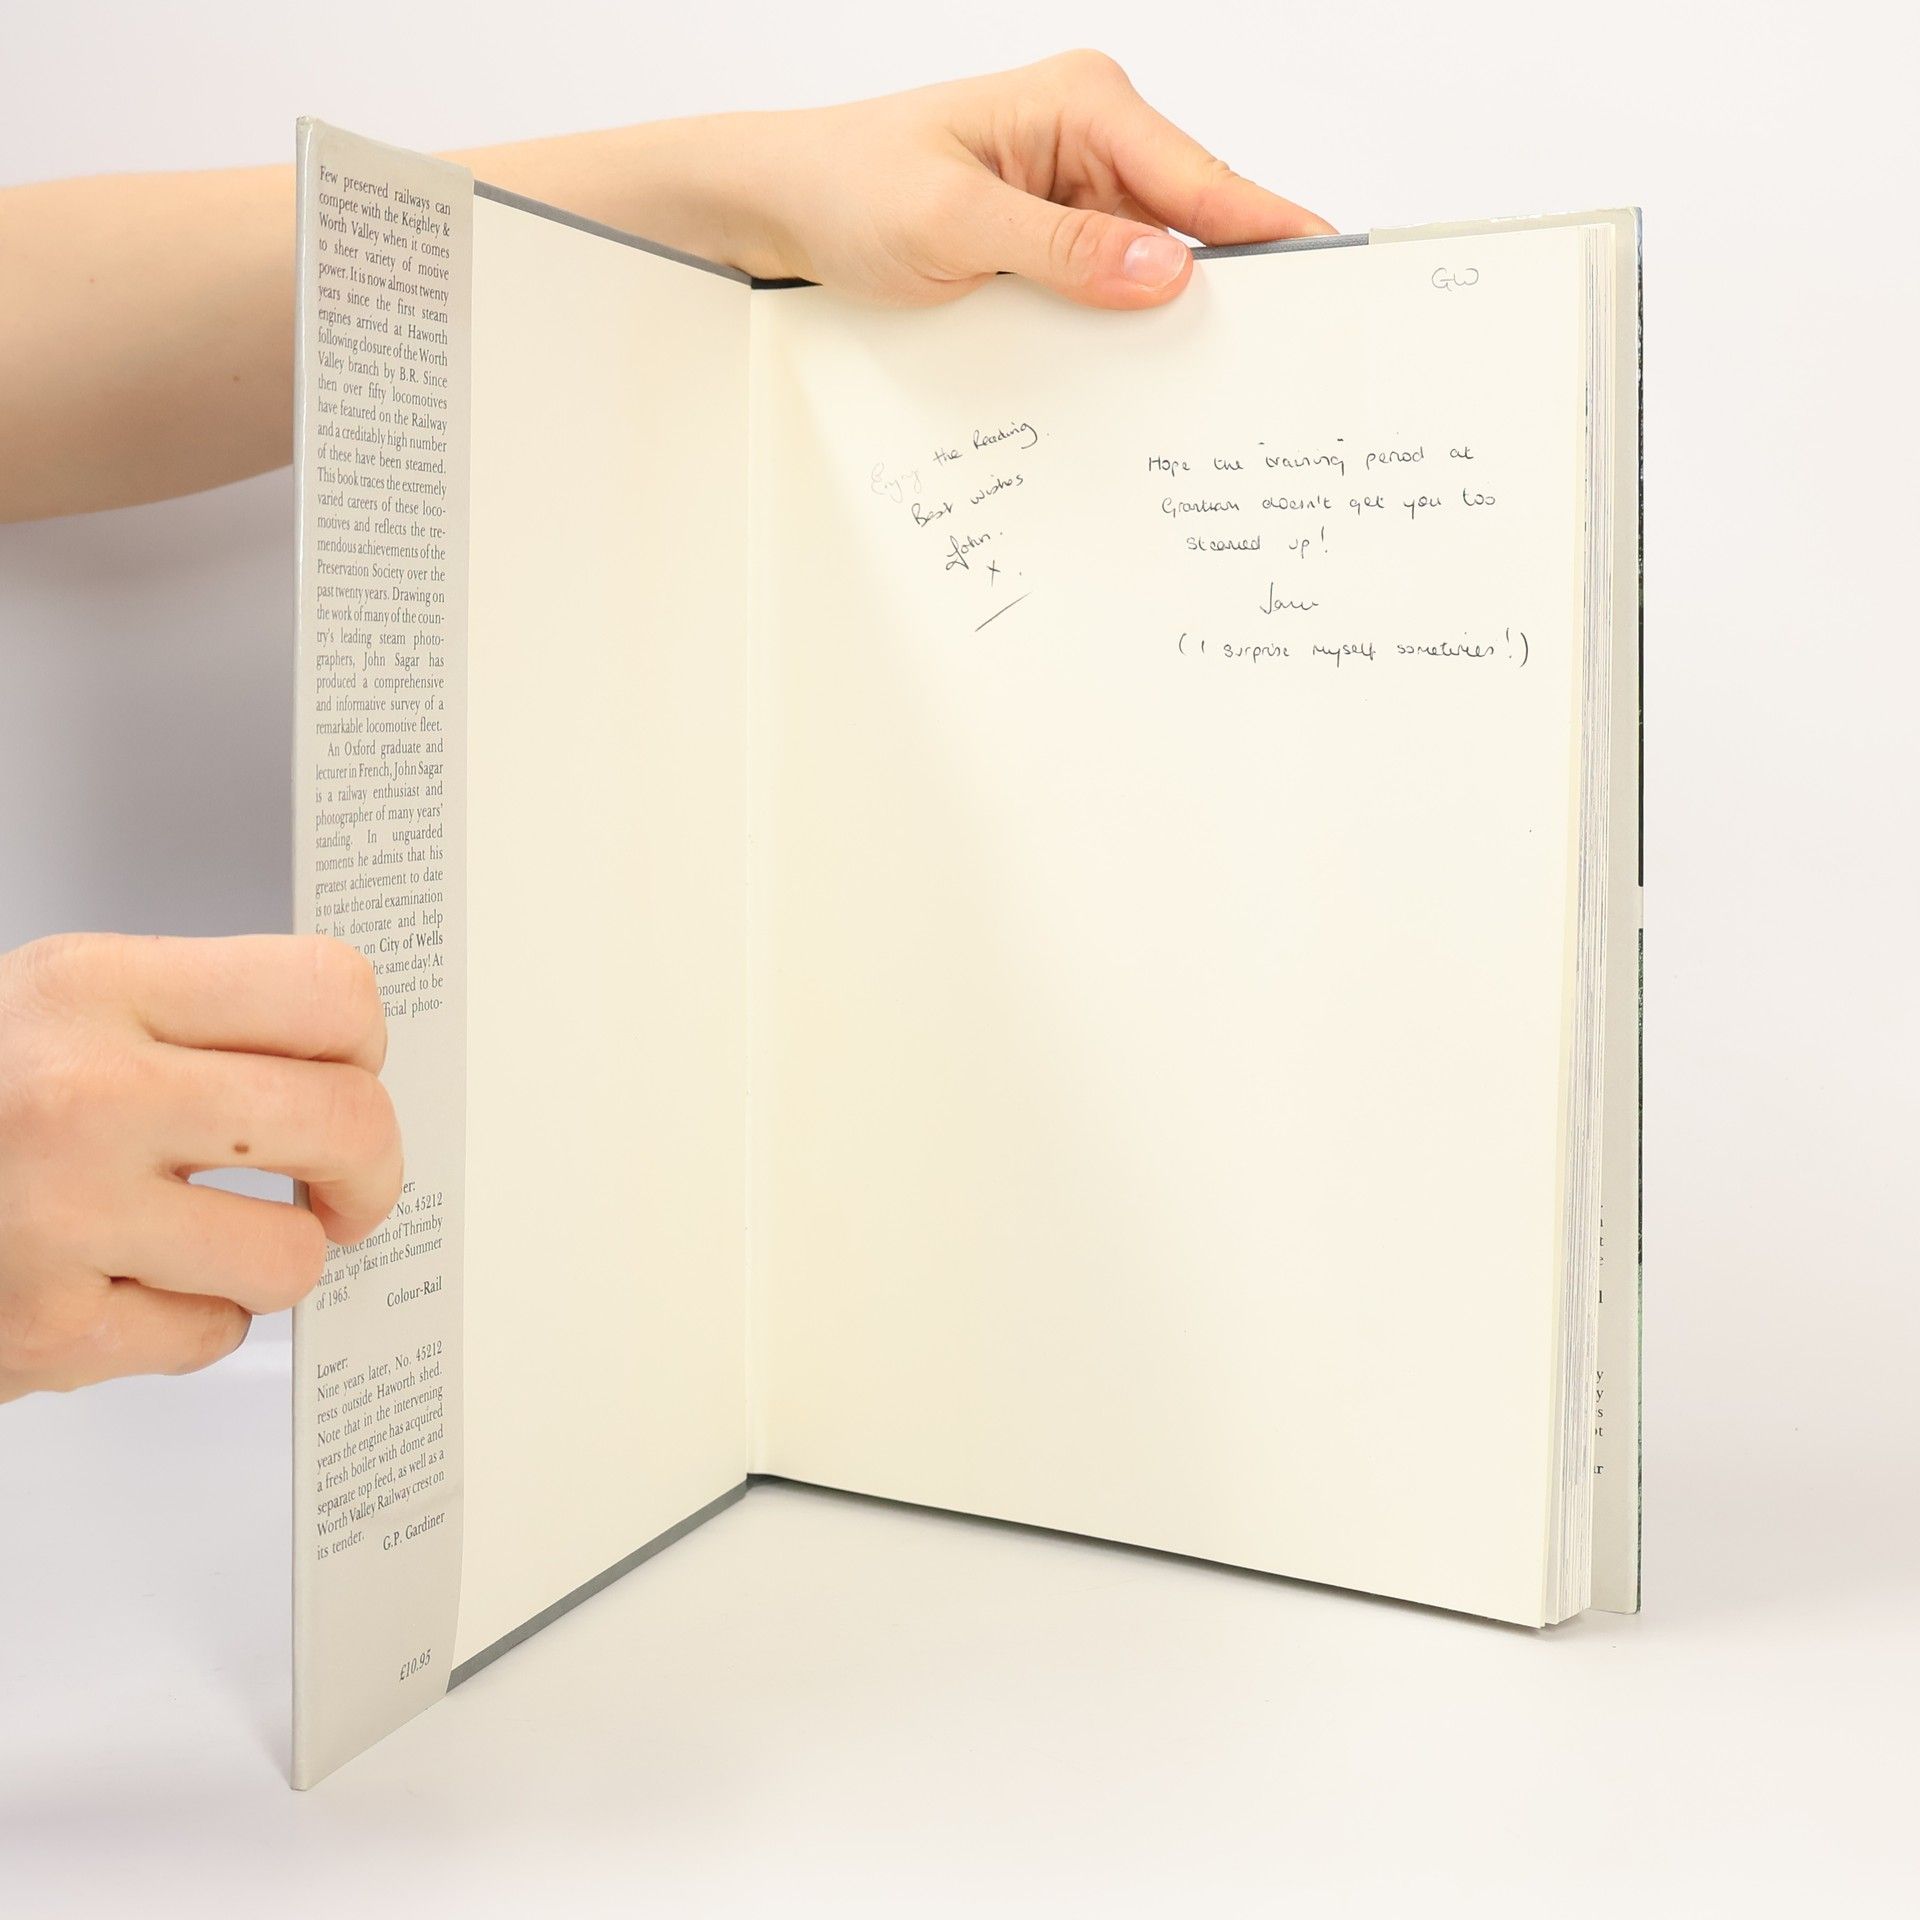 Few preserved railways can
compete with the Keighley &
Worth Valley when it comes
to sheer variety of motive
power. It is now almost twenty
years since the first steam
engines arrived at Haworth
following closure of the Worth
Valley branch by B.R. Since
then over fifty locomotives
have featured on the Railway
and a creditably high number
of these have been steamed.
This book traces the extremely
varied careers of these loco-
motives and reflects the tre-
mendous achievements of the
Preservation Society over the
past twenty years. Drawing on
the work of many of the coun-
try's leading steam photo-
graphers, John Sagar has
produced a comprehensive
and informative survey of a
remarkable locomotive fleet.
An Oxford graduate and
lecturer in French, John Sagar
is a railway enthusiast and
photographer of many years'
standing. In unguarded
moments he admits that his
greatest achievement to date
is to take the oral examination
for his doctorate and help
on City of Wells
the same day! At
honoured to be
official photo-
No. 45212
voice north of Thrimby
with an 'up' fast in the Summer
of 1965.
Colour-Rail
Lower:
Nine years later, No. 45212
rests outside Haworth shed.
Note that in the intervening
years the engine has acquired
a fresh boiler with dome and
separate top feed, as well as a
Worth Valley Railway crest on
its tender.
G.P. Gardiner
£10.95
GW
Enjoy the Reading.
Best wishes
John.
x.
Hope the "training" period at
doesn't get you too
steamed up!
Jane
(I surprise myself sometimes!)